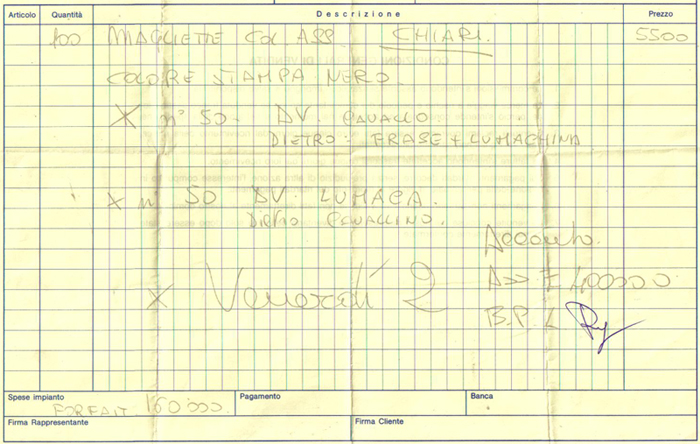 Articolo Quantità Descrizione Prezzo
100 MAGLIETTE COL ASS. CHIARI. 5500
COLORE STAMPA NERO.
X n° 50 - DV. CAVALLO
DIETRO - FRASE + LUMACHINA
X n° 50 DV. LUMACA.
DIETRO CAVALLINO.
Acconto.
X Venerdì 2
400000
B.P.
Spese impianto Pagamento Banca
FORFAIT 160.000
Firma Rappresentante Firma Cliente